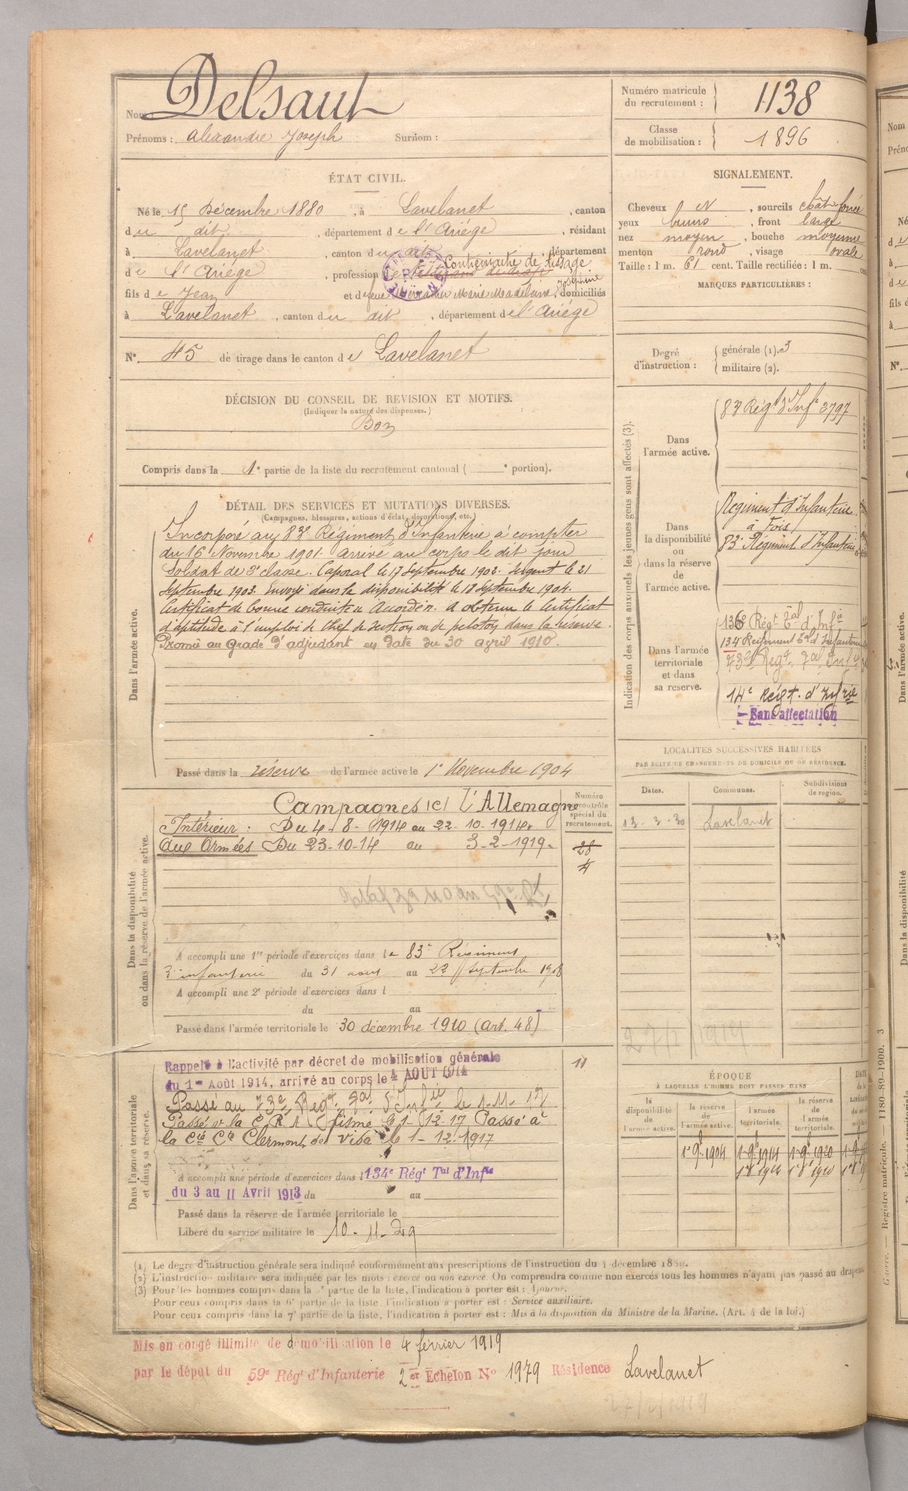 Nom Delsaut
Prénoms : Alexandre Joseph Surnom :
Numéro matricule du recrutement : 1138
Classe de mobilisation : 1896
ÉTAT CIVIL.
Né le 15 Décembre 1880, à Lavelanet, canton
du dit, département de l'Ariége, résidant
à Lavelanet, canton du dit, département
de l'Ariége, profession de Contremaître de tissage
fils de Jean et de feue Marie Madeleine Joséphine, domiciliés
à Lavelanet, canton du dit, département de l'Ariége
N° 45 de tirage dans le canton de Lavelanet
SIGNALEMENT.
Cheveux N, sourcils chât. foncé
yeux bruns, front large
nez moyen, bouche moyenne
menton rond, visage ovale
Taille : 1 m. 61 cent. Taille rectifiée : 1 m. cent.
MARQUES PARTICULIÈRES :
Degré d'instruction : générale (1). 3
militaire (2).
DÉCISION DU CONSEIL DE REVISION ET MOTIFS.
(Indiquer la nature des dispenses.)
Bon
Compris dans la 1e partie de la liste du recrutement cantonal ( e portion).
DÉTAIL DES SERVICES ET MUTATIONS DIVERSES.
(Campagnes, blessures, actions d'éclat, décorations, etc.)
Dans l'armée active.
Incorporé au 83e Régiment d'Infanterie à compter
du 16 Novembre 1901 arrivé au corps le dit jour
Soldat de 2e classe. Caporal le 17 Septembre 1902. Sergent le 21
Septembre 1903. Envoyé dans la disponibilité le 18 Septembre 1904.
Certificat de bonne conduite Accordé. A obtenu le Certificat
d'aptitude à l'emploi de Chef de section ou de peloton dans la réserve.
Promu au Grade d'adjudant en date du 30 avril 1910.
Passé dans la réserve de l'armée active le 1er Novembre 1904
Indication des corps auxquels les jeunes gens sont affectés (3).
Dans l'armée active.
83e Régt d'Infie 3797
Dans la disponibilité ou dans la réserve de l'armée active.
Régiment d'Infanterie
à Foix
83e Régiment d'Infanterie
Dans l'armée territoriale et dans sa réserve.
136 Régt Tal d'Infie
134 Régiment Tal d'Infanterie
73e Régt Tal Inf
14e Régt. d'Infrie
Sans affectation
LOCALITÉS SUCCESSIVES HABITÉES
PAR SUITE DE CHANGEMENTS DE DOMICILE OU DE RÉSIDENCE.
Dates. Communes. Subdivisions de région.
13-3-30 Lavelanet
Dans la disponibilité ou dans la réserve de l'armée active.
Numéro au contrôle spécial du recrutement.
Campagnes (c) l'Allemagne
Intérieur : Du 4-8-1914 au 22-10-1914.
aux Armées Du 23-10-14 au 3-2-1919.
28
4
A accompli une 1re période d'exercices dans le 83e Régiment
d'infanterie du 31 aout au 22 septembre 1908
A accompli une 2e période d'exercices dans l
du au
Passé dans l'armée territoriale le 30 décembre 1910 (art. 48)
Dans l'armée territoriale et dans sa réserve.
Rappelé à l'activité par décret de mobilisation générale
du 1er Août 1914, arrivé au corps le 4 AOUT 1914
11
Passé au 73e Régt Tal d'Infie le 1-11-17
la Cie Clermont de Visa le 1-12-1917
A accompli une période d'exercices dans l 134e Régt Tal d'Infie
du 3 au 11 Avril 1913 du au
Passé dans la réserve de l'armée territoriale le
Libéré du service militaire le 10-11-29
27/2/1919
ÉPOQUE
À LAQUELLE L'HOMME DOIT PASSER DANS
la disponibilité de l'armée active. la réserve de l'armée active. l'armée territoriale. la réserve de l'armée territoriale.
1er 9bre 1904 1er 9bre 1914 1er 9bre 1920
(1) Le degré d'instruction générale sera indiqué conformément aux prescriptions de l'instruction du 4 décembre 1889.
(2) L'instruction militaire sera indiquée par les mots : exercé ou non exercé. On comprendra comme non exercés tous les hommes n'ayant pas passé au drapeau.
(3) Pour les hommes compris dans la 5e partie de la liste, l'indication à porter est : Ajourné.
Pour ceux compris dans la 6e partie de la liste, l'indication à porter est : Service auxiliaire.
Pour ceux compris dans la 7e partie de la liste, l'indication à porter est : Mis à la disposition du Ministre de la Marine. (Art. 4 de la loi.)
Mis en congé illimité de démobilisation le 4 février 1919
par le dépôt du 59e Régt d'Infanterie 2er Echelon N° 1979 Résidence Lavelanet
27/2/1919